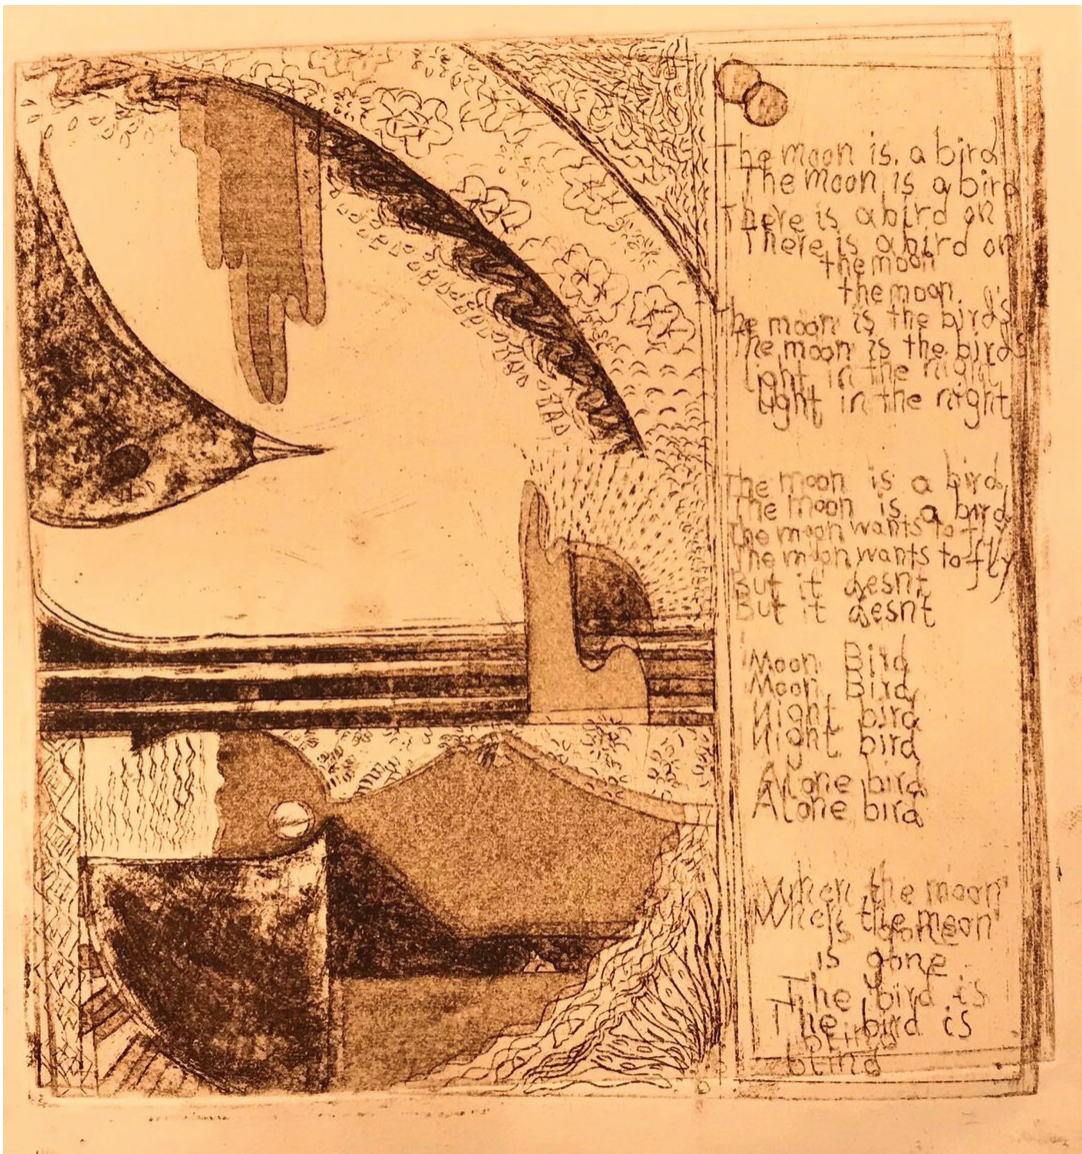 The moon is a bird
The moon is a bird
There is a bird on
There is a bird on
the moon
the moon.
The moon is the bird's
The moon is the bird's
light in the night
light in the night
The moon is a bird,
The moon is a bird,
The moon wants to fly
The moon wants to fly
But it desnt
But it desnt
Moon Bird
Moon Bird
Night bird
Night bird
Alone bird
Alone bird
When the moon
When the moon
is gone
is gone
The bird is
The bird is
blind
blind